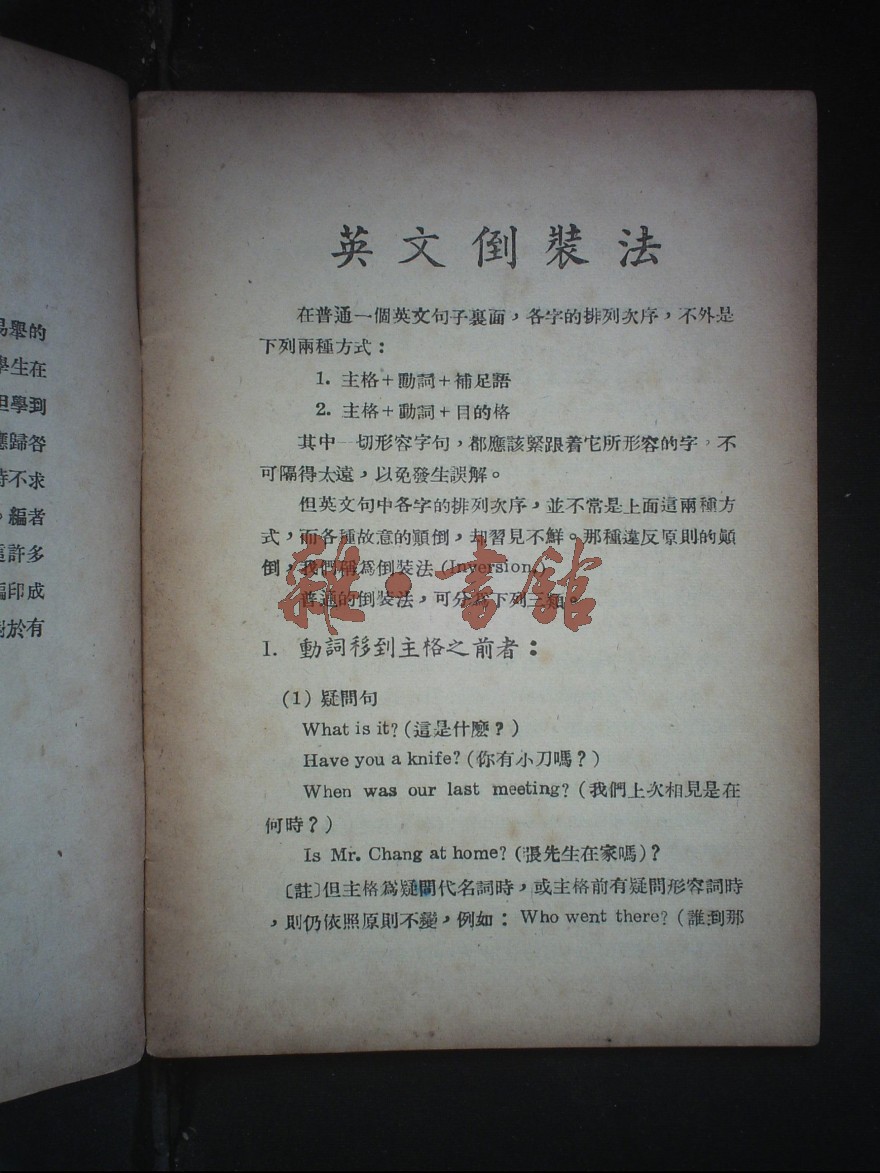 易舉的
學生在
但學到
應歸咎
時不求
。編者
這許多
編印成
對於有
英文倒裝法
在普通一個英文句子裏面，各字的排列次序，不外是
下列兩種方式：
1. 主格＋動詞＋補足語
2. 主格＋動詞＋目的格
其中一切形容字句，都應該緊跟着它所形容的字，不
可隔得太遠，以免發生誤解。
但英文句中各字的排列次序，並不常是上面這兩種方
式，而各種故意的顚倒，却習見不鮮。那種違反原則的顚
倒，我們稱爲倒裝法 (Inversion.)
普通的倒裝法，可分爲下列三類。
雜·書館
I. 動詞移到主格之前者：
(1) 疑問句
What is it? (這是什麼？)
Have you a knife? (你有小刀嗎？)
When was our last meeting? (我們上次相見是在
何時？)
Is Mr. Chang at home? (張先生在家嗎)?
〔註〕但主格爲疑問代名詞時，或主格前有疑問形容詞時
，則仍依照原則不變，例如：Who went there? (誰到那